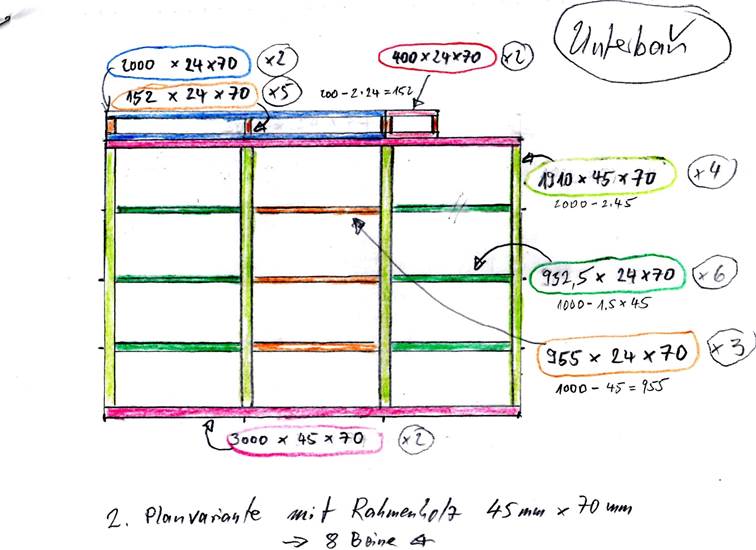 Unterbau
2000 × 24 × 70 ×2
400 × 24 × 70 ×2
152 × 24 × 70 ×5
200 - 2·24 = 152
1910 × 45 × 70 ×4
2000 - 2·45
932,5 × 24 × 70 ×6
1000 - 1,5 × 45
955 × 24 × 70 ×3
1000 - 45 = 955
3000 × 45 × 70 ×2
2. Planvariante mit Rahmenholz 45 mm × 70 mm
→ 8 Beine